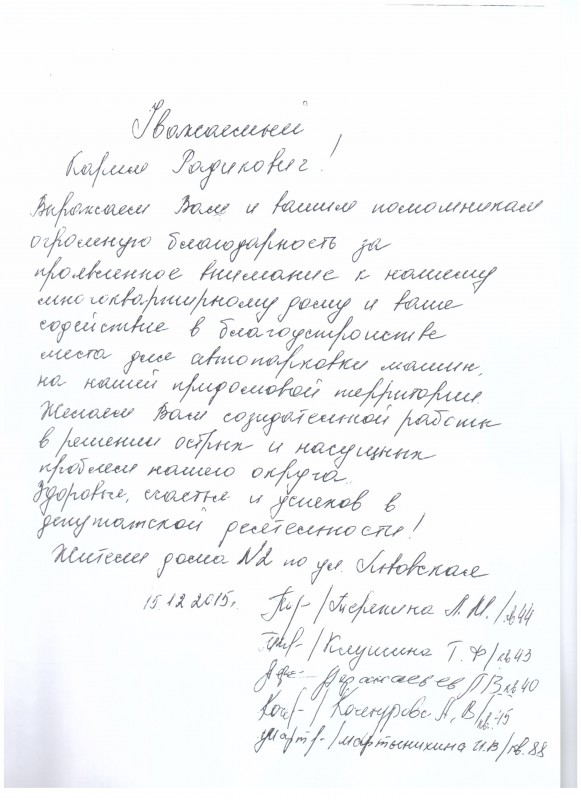 Уважаемый
Карим Радикович!
Выражаем Вам и вашим помощникам
огромную благодарность за
проявленное внимание к нашему
многоквартирному дому и ваше
содействие в благоустройстве
места для автопарковки машин,
на нашей придомовой территории.
Желаем Вам созидательной работы
в решении острых и насущных
проблем нашего округа.
Здоровья, счастья и успехов в
депутатской деятельности!
Жители дома №2 по ул. Львовская
15.12.2015г.
/ Л.М. / кв 44
/ Клушина Т.Ф / кв 43
В кв 40
/ А, В / кв. 15
/ Мартынихина И.В / кв. 88